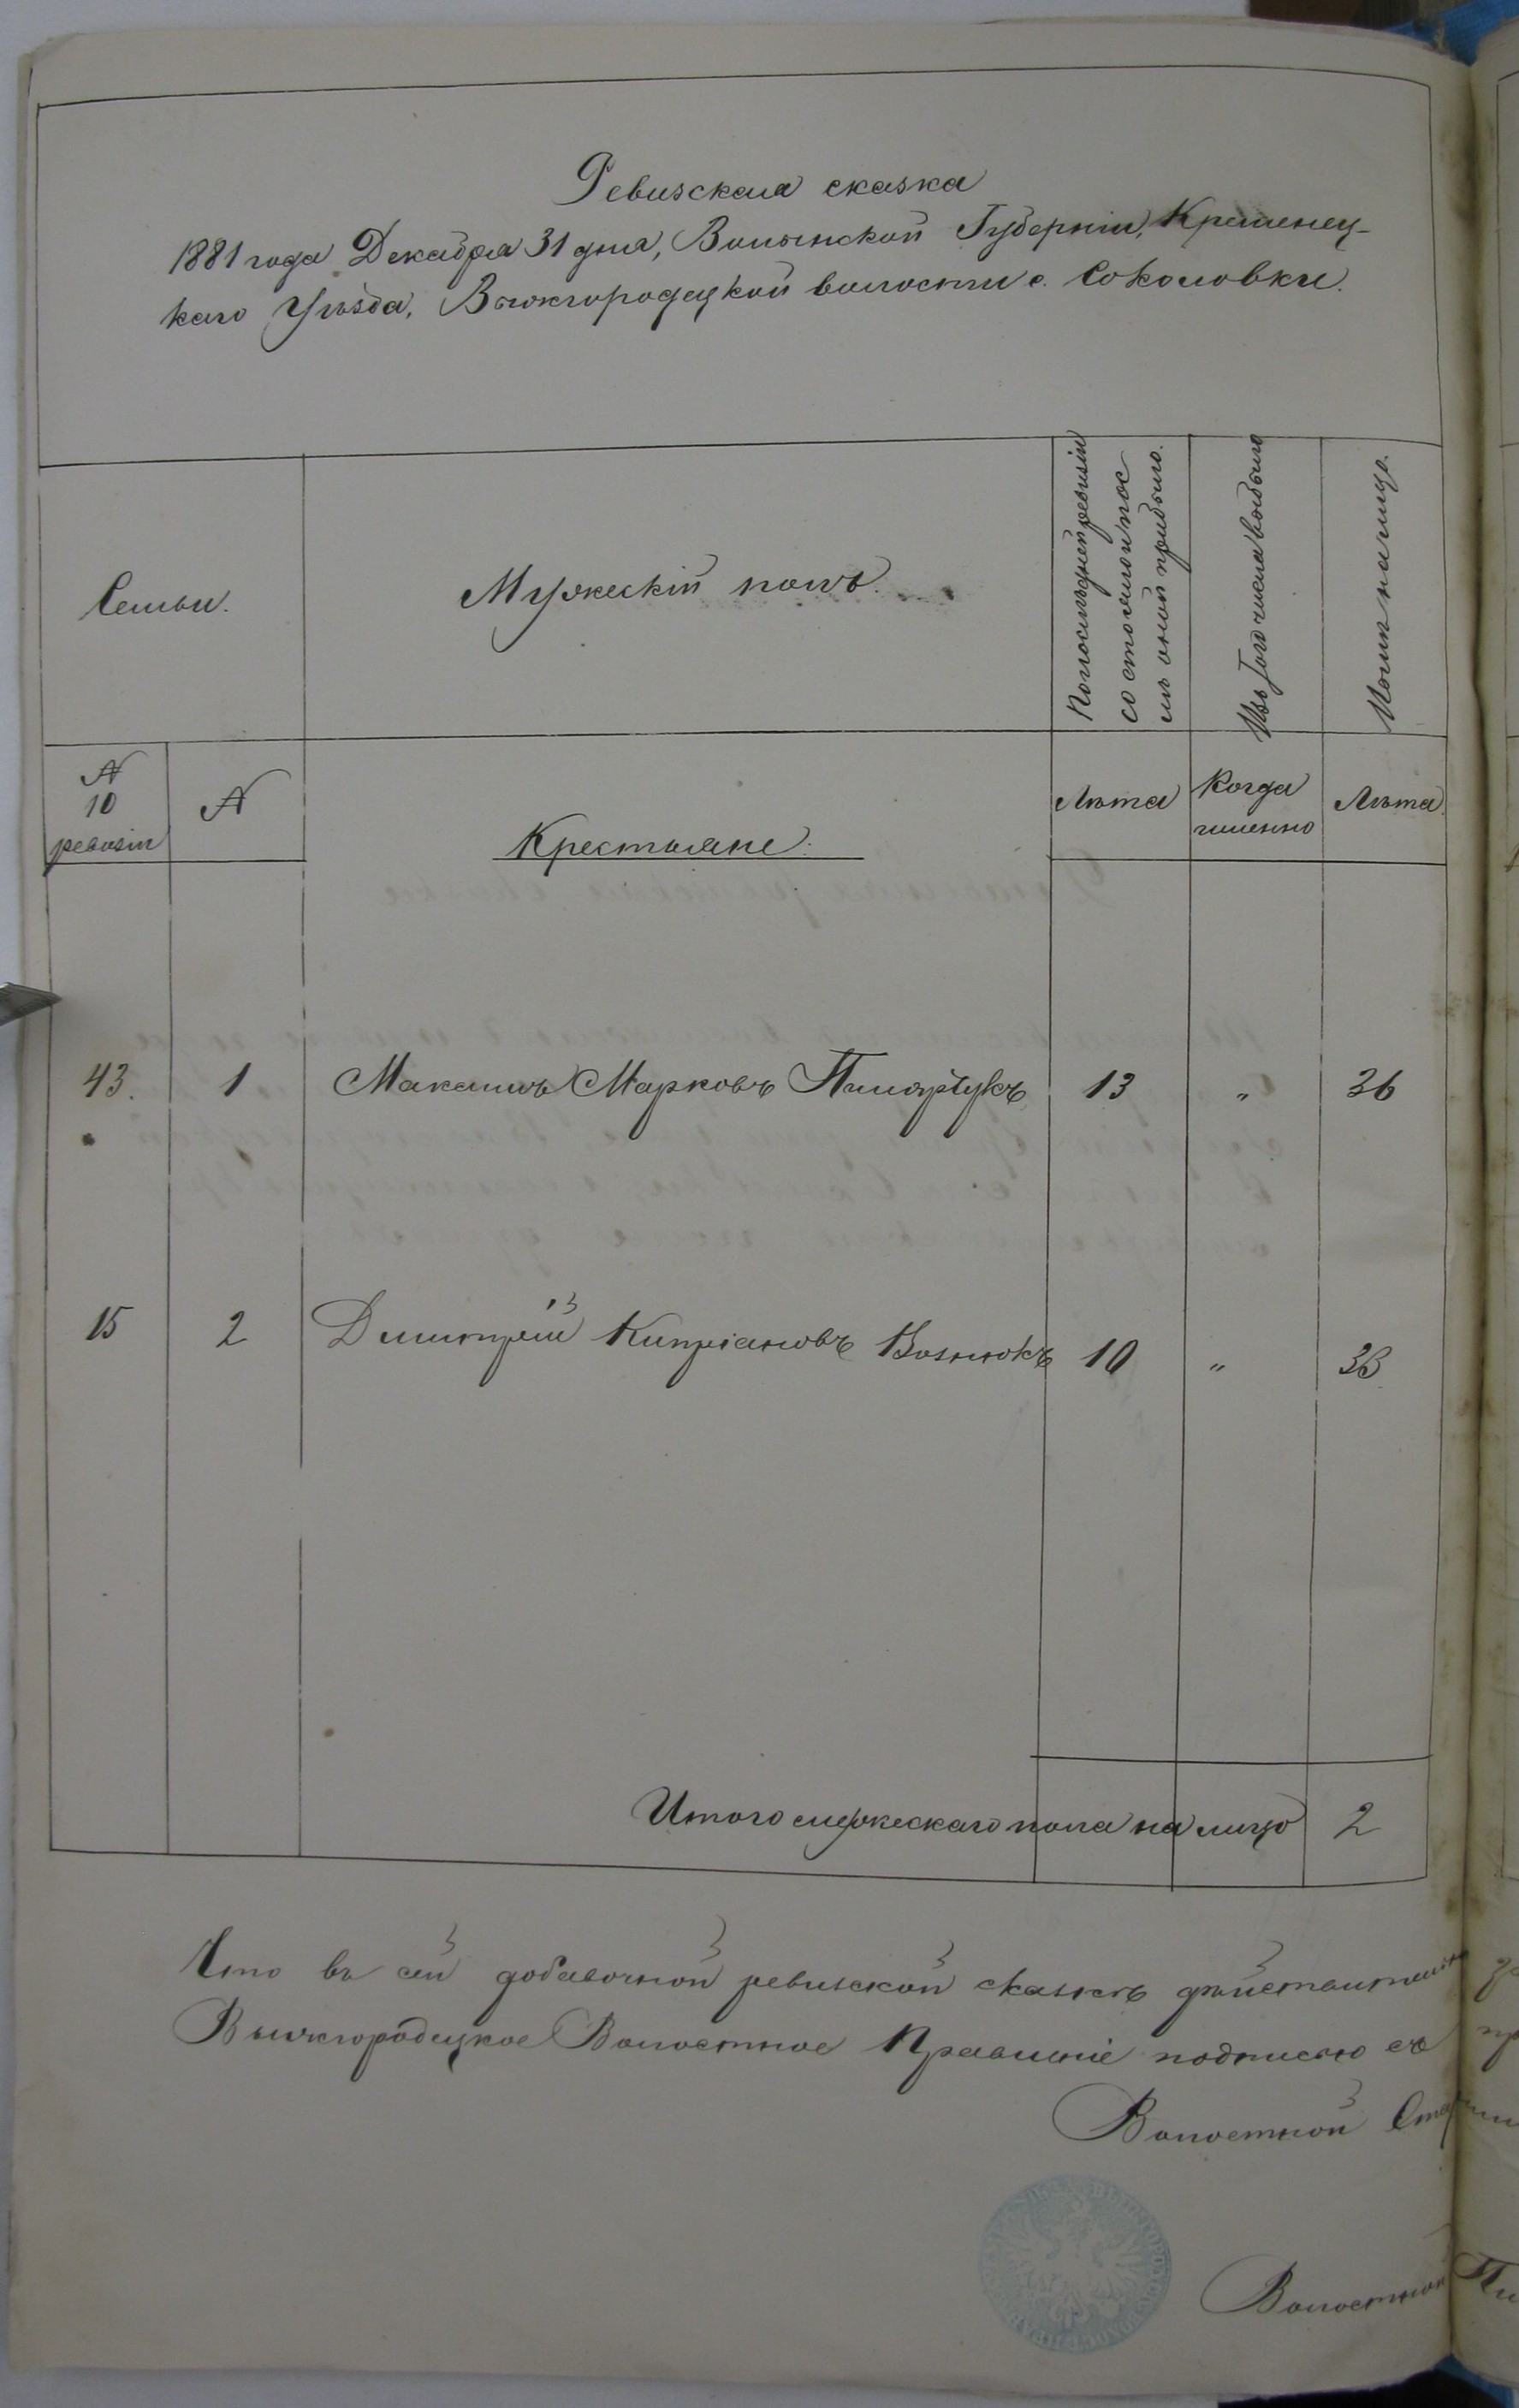 Ревизская сказка
1881 года Декабря 31 дня, Волынской Губерніи, Кременец-
каго Уѣзда, Вышгородецкой волости с. Соколовки.
Семьи.
Мужескій полъ.
По послѣдней ревизіи
состояло и пос
лѣ оной прибыло.
Изъ того числа выбыло
Нынѣ налицо.
№
10
ревизіи
№
Крестьяне.
Лѣта
Когда
именно
Лѣта
43. 1 Максимъ Марковъ 13 " 36
15 2 Димитрій Кипріановъ Вознюкъ 10 " 33
Итого мужескаго пола на лицо 2
Что въ сей добавочной ревизской сказкѣ дѣйствительно
Вышгородецкое Волостное Правленіе подписью съ
Волостной
Волостной